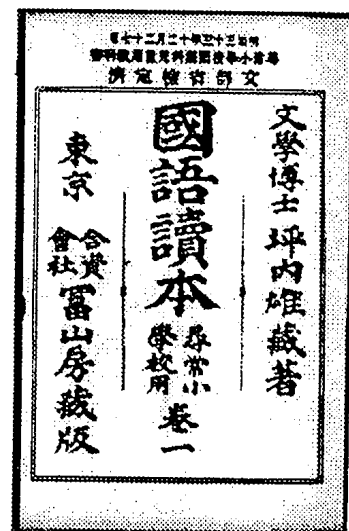 明治三十三年十二月二十七日
尋常小學校國語科兒童用教科書
文部省檢定濟
文學博士 坪内雄藏著
國語讀本
尋常小
學校用
卷一
東京
合資
會社
冨山房藏版